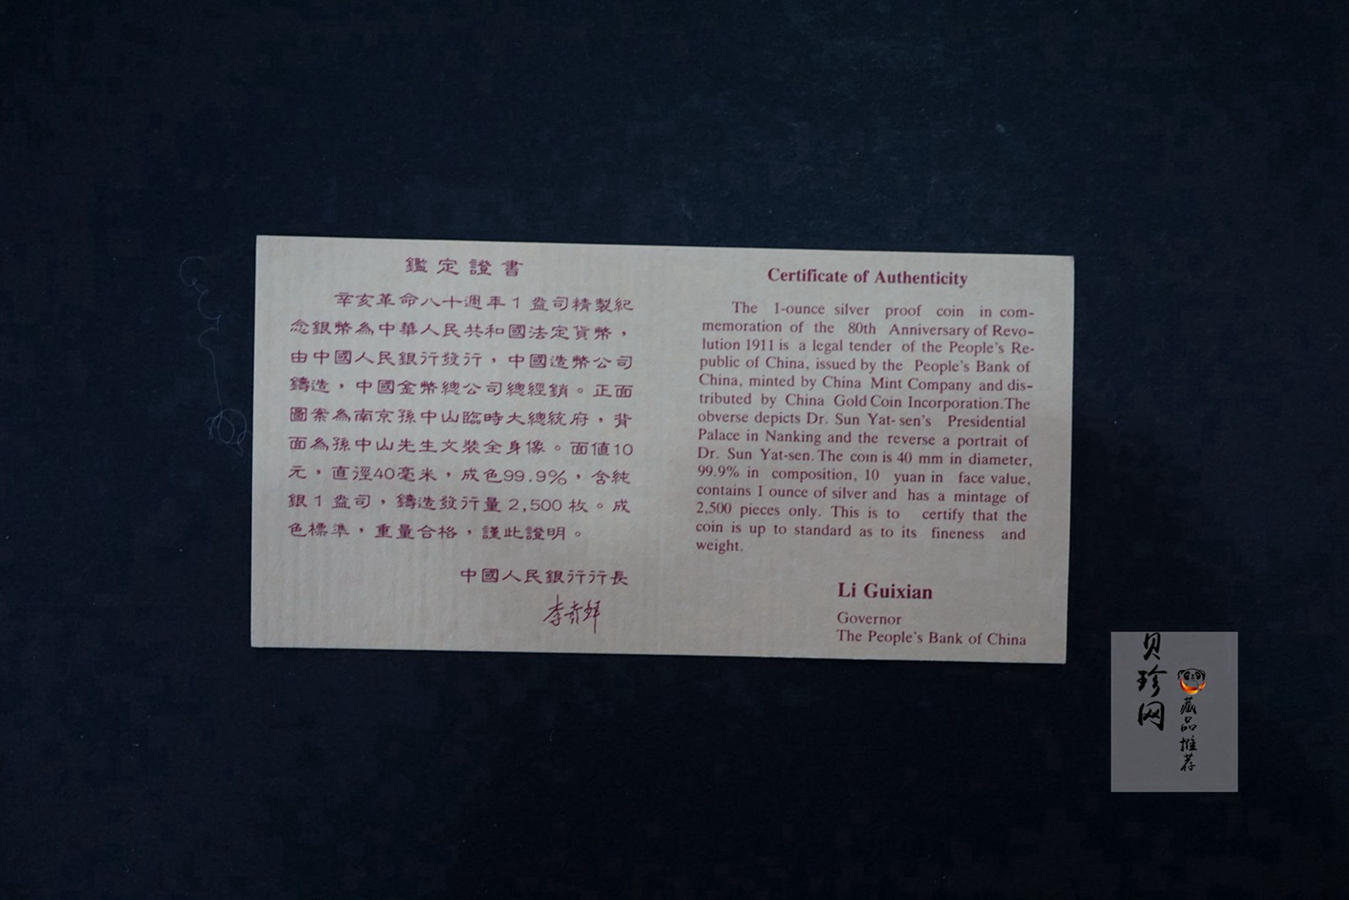 鑑定證書
辛亥革命八十週年1盎司精製紀
念銀幣為中華人民共和國法定貨幣，
由中國人民銀行發行，中國造幣公司
鑄造，中國金幣總公司總經銷。正面
圖案為南京孫中山臨時大總統府，背
面為孫中山先生文裝全身像。面值10
元，直徑40毫米，成色99.9%，含純
銀1盎司，鑄造發行量2,500枚。成
色標準，重量合格，謹此證明。
中國人民銀行行長
Certificate of Authenticity
The 1-ounce silver proof coin in com-
memoration of the 80th Anniversary of Revo-
lution 1911 is a legal tender of the People's Re-
public of China, issued by the People's Bank of
China, minted by China Mint Company and dis-
tributed by China Gold Coin Incorporation.The
obverse depicts Dr. Sun Yat-sen's Presidential
Palace in Nanking and the reverse a portrait of
Dr. Sun Yat-sen. The coin is 40 mm in diameter,
99.9% in composition, 10 yuan in face value,
contains 1 ounce of silver and has a mintage of
2,500 pieces only. This is to certify that the
coin is up to standard as to its fineness and
weight.
Li Guixian
Governor
The People's Bank of China
贝珍网
藏品推荐